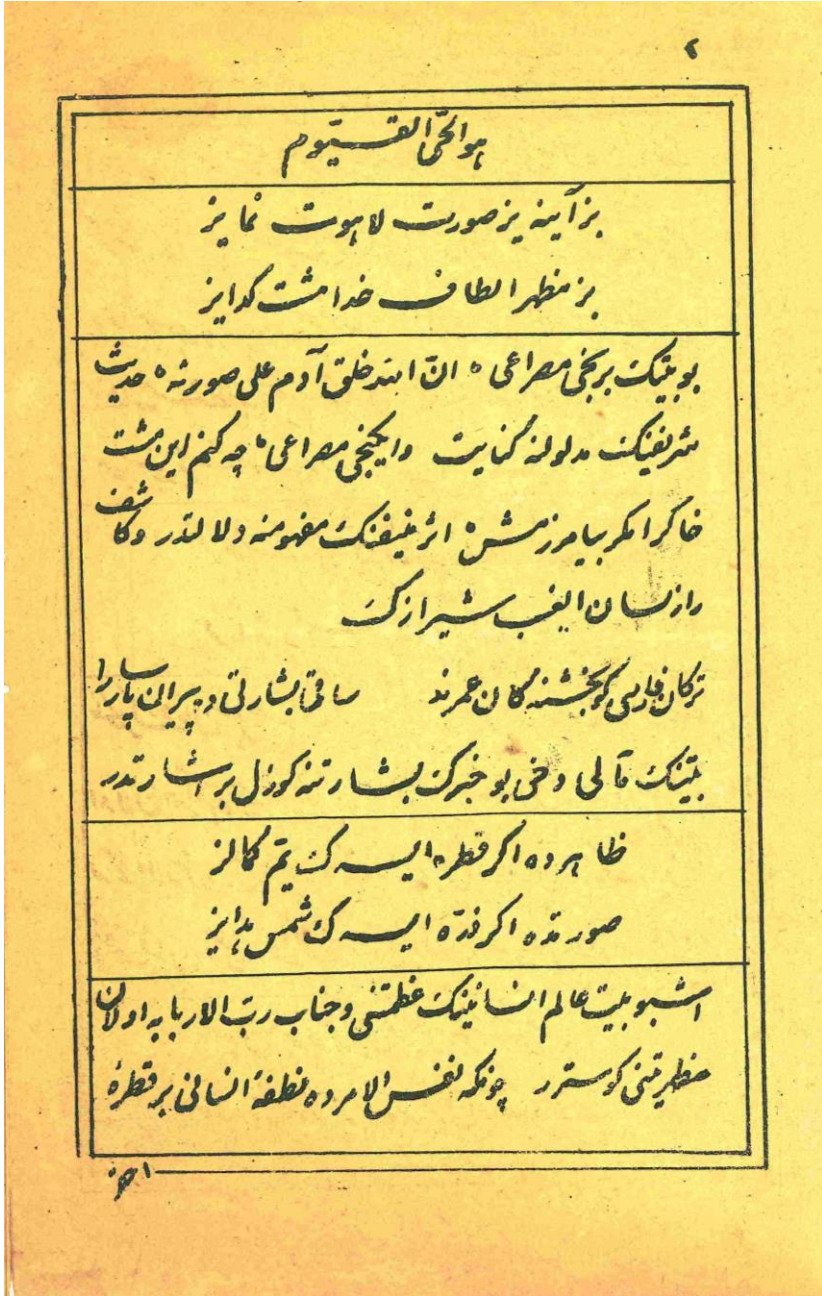 ٢
هو الحیّ القیّوم
بز آیینه یز صورت لاهوت نمایز
بز مظهر الطاف خدا مشت كدایز
بو بیتك برنجی مصراعی ° انّ الله خلق آدم علی صورته ° حدیث
شریفینك مدلولنه كنایت وایكنجی مصراعی ° چه كنم این مشت
خاكرا مكر بیامرزمش ° اثر منیفنك مفهومنه دلالتدر وكاشف
راز لسان الغیب شیرازك
تركان فارسی كو بخشنده كان عمرند ساقی بشارتی ده پیران پارسا را
بیتنك مآلی دخی بو خبرك بشارتنه كوزل بر اشارتدر
ظاهرده اكر قطره ایسه ك یم كمالز
صورتده اكر ذرّه ایسه ك شمس هدایز
اشبو بیت عالم انسانینك عظمتنی وجناب ربّ الاربابه اولان
مظهریتنی كوسترر چونكه نفس الامرده نطفۀ انسانی بر قطرۀ